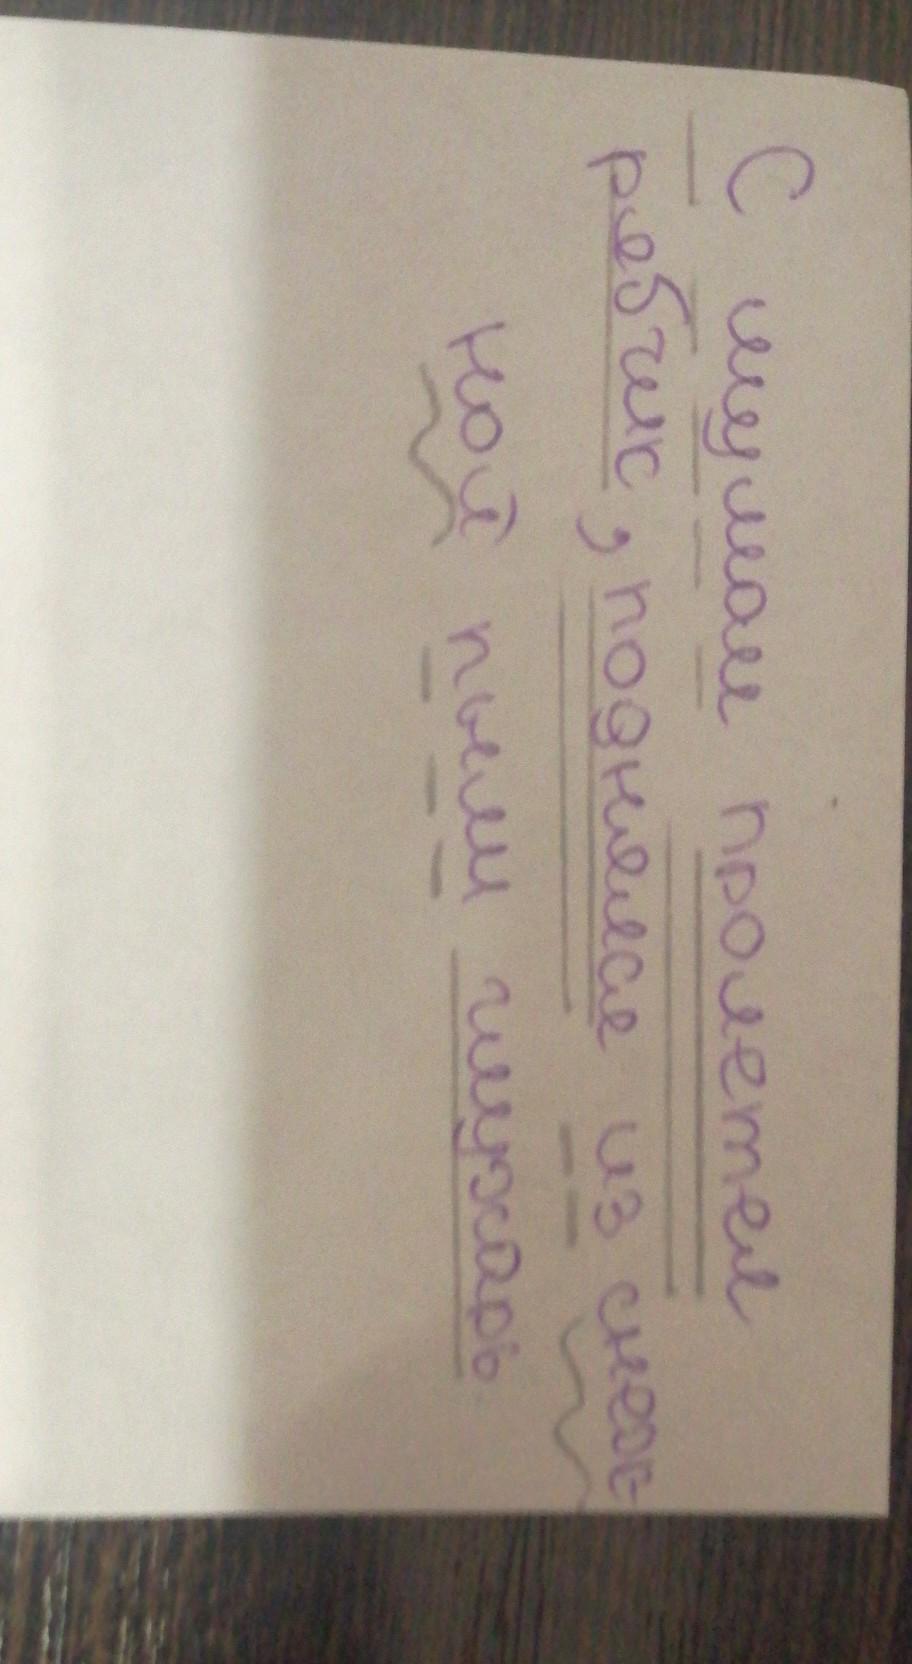 С шумом пролетел
рябчик, поднялся из снеж-
ной пыли глухарь.